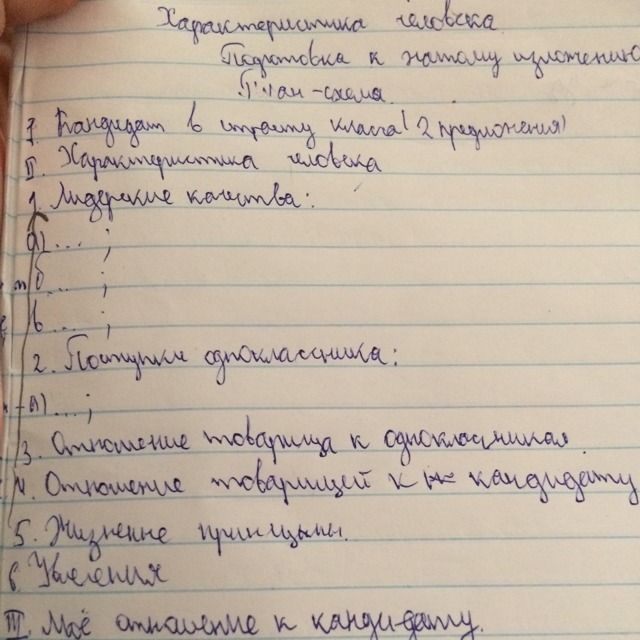 Характеристика человека
Подготовка к жатому изложению
План-схема
I. Кандидат в старосту класса (2 предложения)
II. Характеристика человека
1. Лидерские качества:
а) ... ;
б ... ;
в ... ;
2. Поступки одноклассника:
а) ... ;
3. Отношение товарища к одноклассникам
4. Отношение товарищей к кандидату
5. Жизненне принцыпы.
6. Увлечения
III. Моё отношение к кандидату.